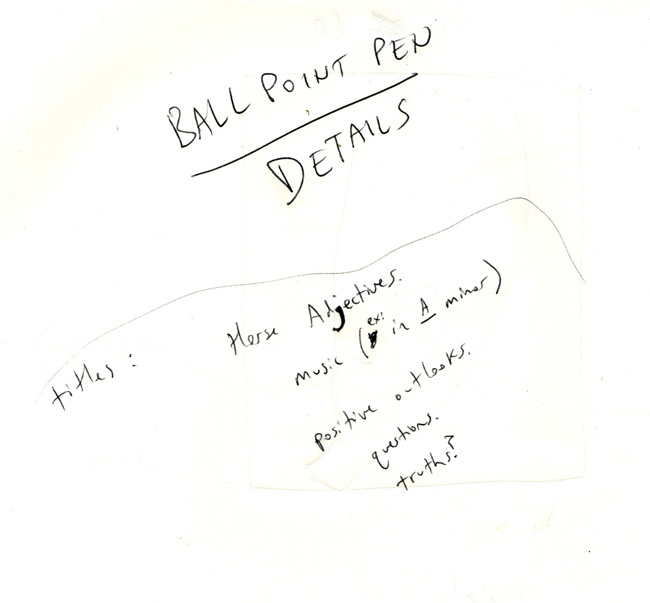 BALL POINT PEN
DETAILS
titles: Horse Adjectives.
music (ex: in A minor)
positive outlooks.
questions.
truths?